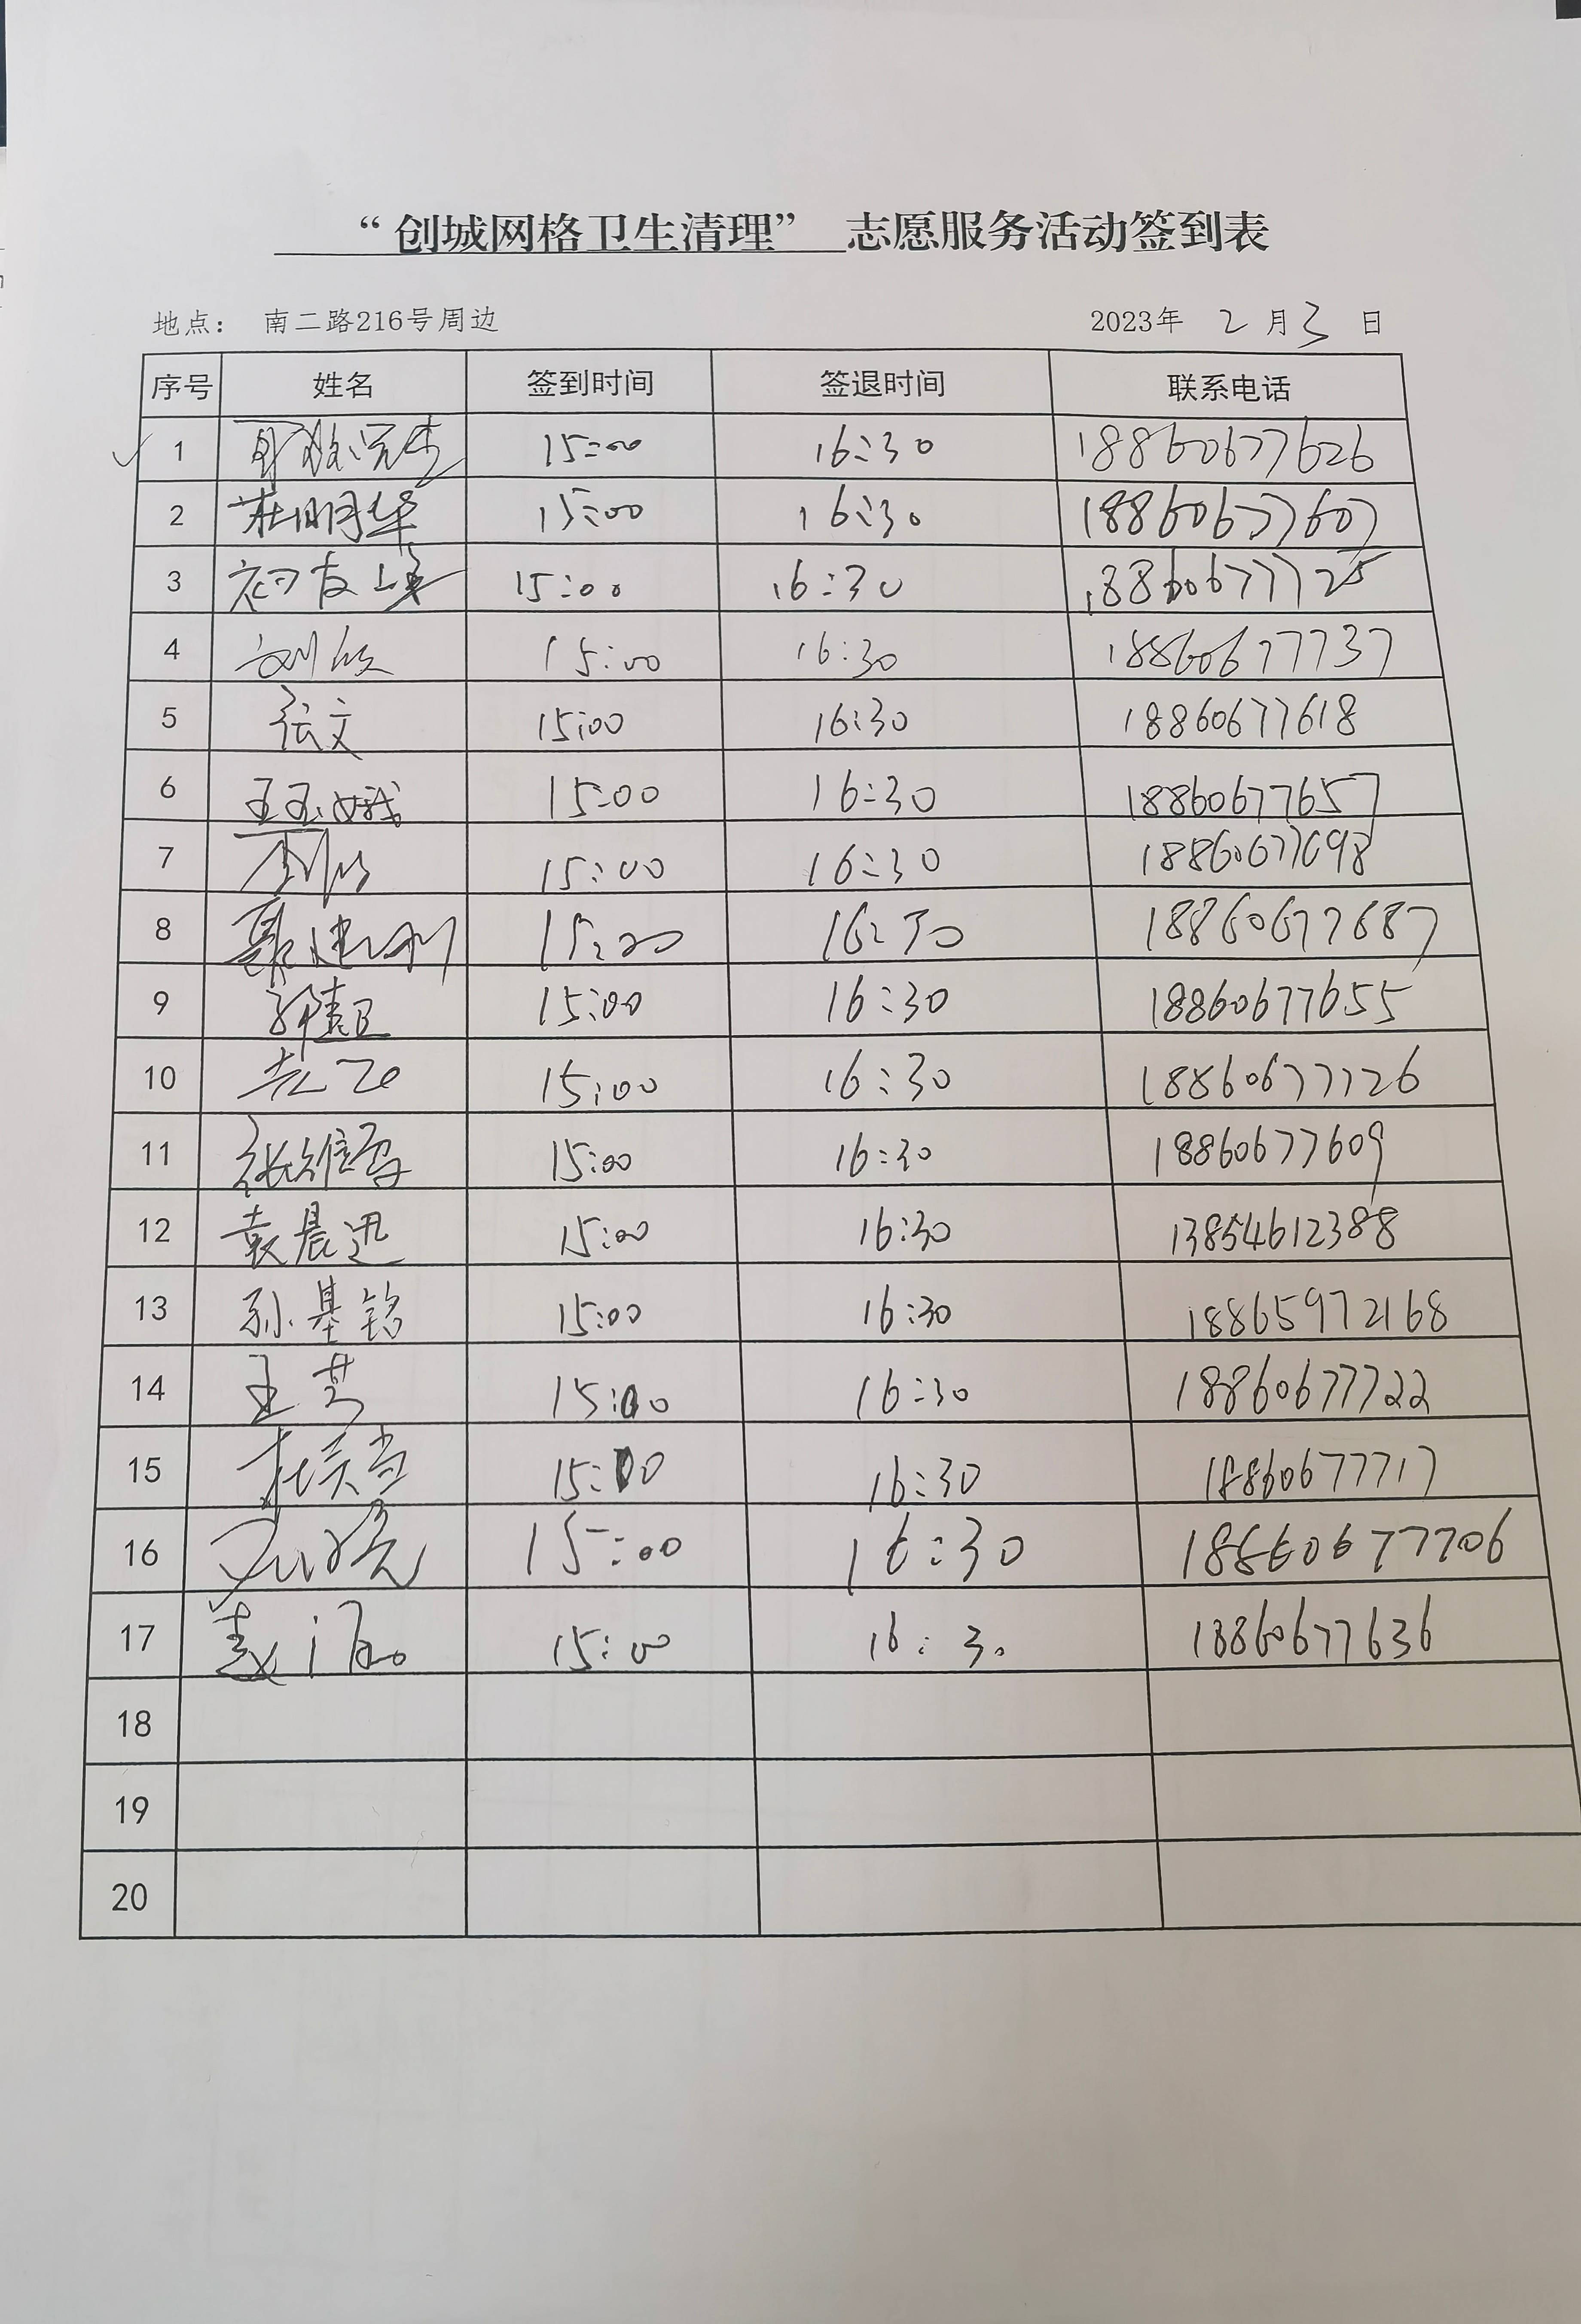 “创城网格卫生清理” 志愿服务活动签到表
地点： 南二路216号周边 2023年 2 月 3 日
序号 姓名 签到时间 签退时间 联系电话
1 15:00 16:30 18860677626
2 杜明华 15:00 16:30 18860677607
3 初友峰 15:00 16:30 18860677725
4 15:00 16:30 18860677737
5 张文 15:00 16:30 18860677618
6 王玉娥 15:00 16:30 18860677657
7 15:00 16:30 18860677698
8 15:00 16:30 18860677687
9 15:00 16:30 18860677655
10 15:00 16:30 18860677726
11 15:00 16:30 18860677609
12 袁晨迅 15:00 16:30 13854612388
13 孙基铭 15:00 16:30 18865972168
14 王艺 15:00 16:30 18860677722
15 15:00 16:30 18860677717
16 15:00 16:30 18860677706
17 15:00 16:30 18860677636
18
19
20